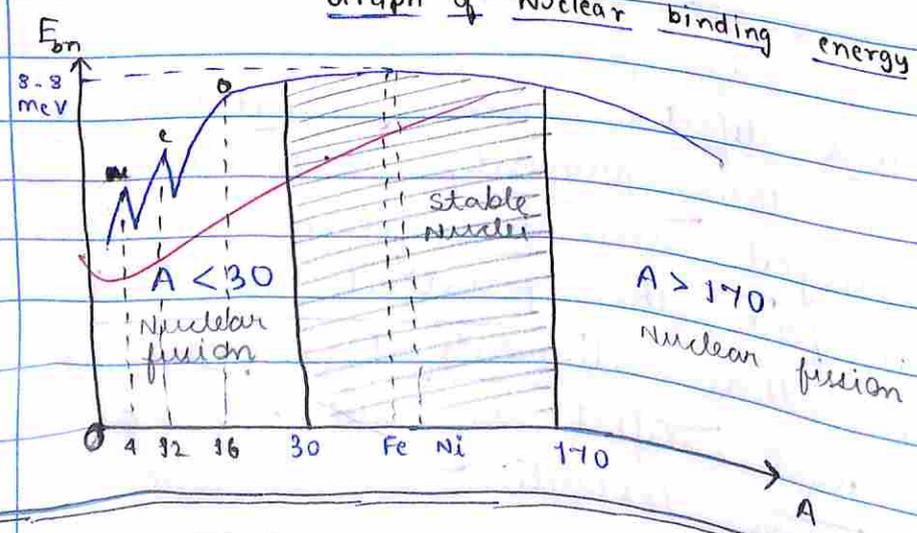 Graph of Nuclear binding energy
Ebn
8.8
MeV
C
O
Stable
Nuclei
A < 30
Nuclear
fusion
A > 170
Nuclear fission
O 4 12 16 30 Fe Ni 170
A